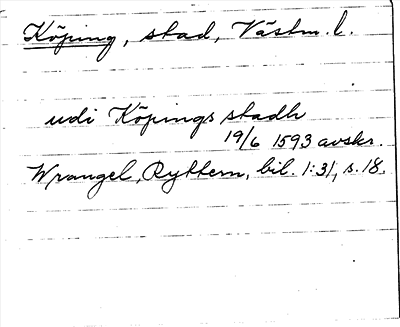 Köping, stad, Västm. l.
udi Köpings stadh
19/6 1593 avskr.
Wrangel, Ryttern, bil. 1:31, s. 18.